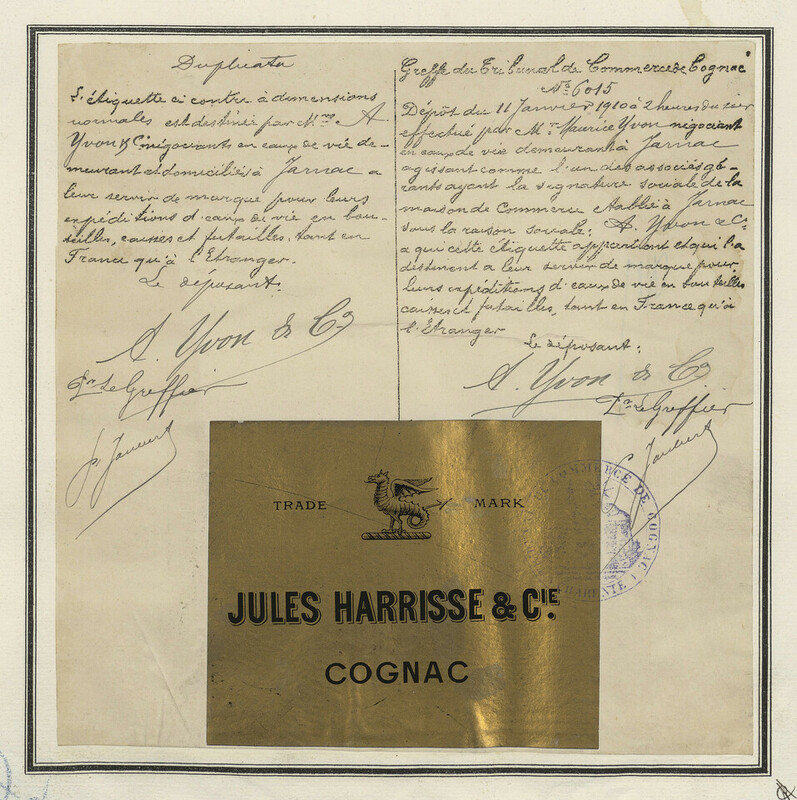 Duplicata
L'étiquette ci contre à dimensions
normales est destinée par M.rs A.
Yvon & Cie négociants en eaux de vie de-
meurant et domiciliés à Jarnac a
leur servir de marque pour leurs
expéditions d'eaux de vie en bou-
teilles, caisses et futailles, tant en
France qu'à l'Etranger.
Le déposant.
A. Yvon & Co
Pr Le Greffier
Greffe du Tribunal de Commerce de Cognac
No 6015
Dépôt du 11 Janvier 1910 à 2 heures du soir
effectué par Mr Maurice Yvon négociant
en eaux de vie demeurant à Jarnac
agissant comme l'un des associés gé-
rants ayant la signature sociale de la
maison de Commerce établie à Jarnac
sous la raison sociale: A. Yvon & Co
a qui cette étiquette appartient et qui l'a
destinent a leur servir de marque pour
leurs expéditions d'eaux de vie en bouteilles
caisses et futailles, tant en France qu'à
l'Etranger
Le déposant:
A. Yvon & Co
Pr Le Greffier
TRADE MARK
JULES HARRISSE & CIE.
COGNAC
COMMERCE DE COGNAC